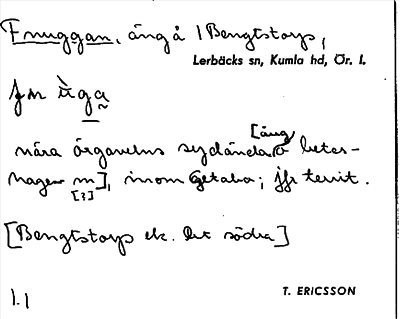 Fnuggan, äng å 1 Bengtstorp,
Lerbäcks sn, Kumla hd, Ör. l.
fnùga
nära ägarens sydända, [äng å] betes-
hagen m], inom Getabo; jfr territ.
[?]
[Bengtstorp ek. bl. södra]
1.1
T. ERICSSON